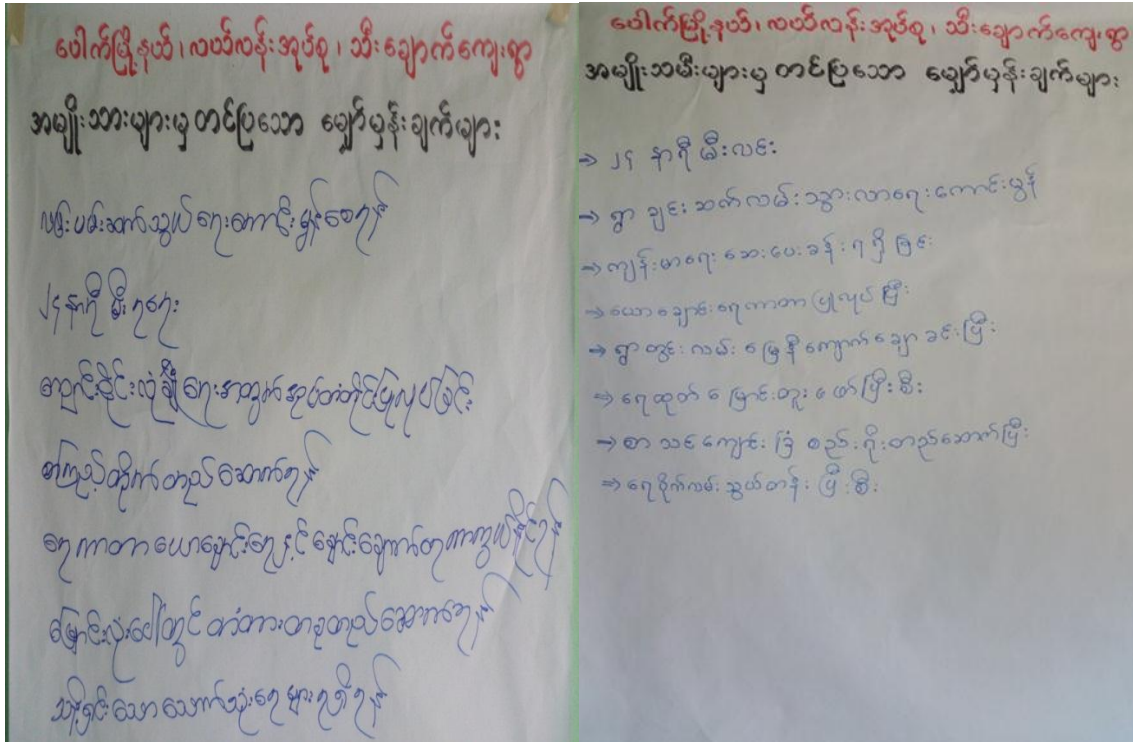 ပေါက်မြို့နယ်၊ လယ်လန်းအုပ်စု၊ သီးချောက်ကျေးရွာ
အမျိုးသားများမှ တင်ပြသော မျှော်မှန်းချက်များ
လမ်းပမ်းဆက်သွယ်ရေးကောင်းမွန်စေရန်
၂၄ နာရီ မီးရရေး
ကျောင်းဝိုင်းလုံခြုံရေးအတွက်အုပ်တံတိုင်းပြုလုပ်ခြင်း
စာကြည့်တိုက်တည်ဆောက်ရန်
ရေကာတာယောချောင်းရေနှင့်ချောင်းချောက်တူကာကွယ်နိုင်ရန်
မြောင်းလုံးပေါ်တွင် တံတားတစုတည်ဆောက်ရန်
သန့်ရှင်းသော သောက်သုံးရေများရရှိရန်
ပေါက်မြို့နယ်၊ လယ်လန်းအုပ်စု၊ သီးချောက်ကျေးရွာ
အမျိုးသမီးများမှ တင်ပြသော မျှော်မှန်းချက်များ
→ ၂၄ နာရီ မီးလင်း
→ ရွာချင်းဆက်လမ်းသွားလာရေးကောင်းမွန်
→ ကျန်းမာရေး ဆေးပေးခန်း ရရှိခြင်း
→ ယောချောင်းရေကာတာ ပြုလုပ်ပြီး
→ ရွာတွင်းလမ်း မြေနီကျောက်ချောခင်းပြီး
→ ရေထုတ်မြောင်းတူးဖော်ပြီးစီး
→ စာသင်ကျောင်း ခြံစည်းရိုးတည်ဆောက်ပြီး
→ ရေပိုက်လမ်းသွယ်တန်းပြီးစီး